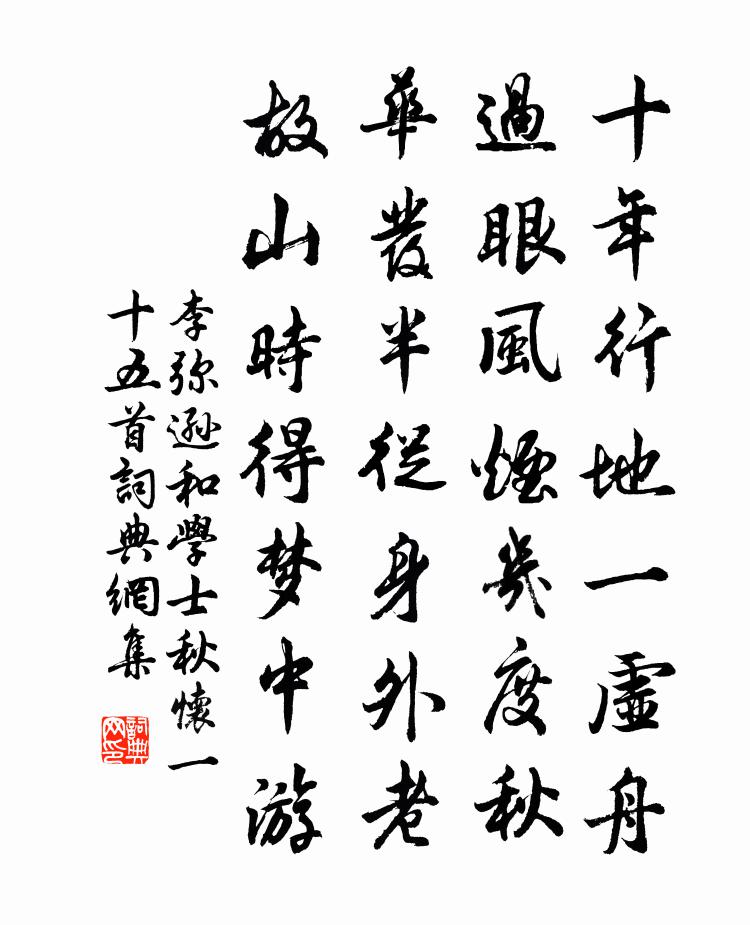 十年行地一虛舟
過眼風煙幾度秋
華發半從身外老
故山時得梦中游
李弥遜和學士秋懷一
十五首詞典網集
詞典
网印